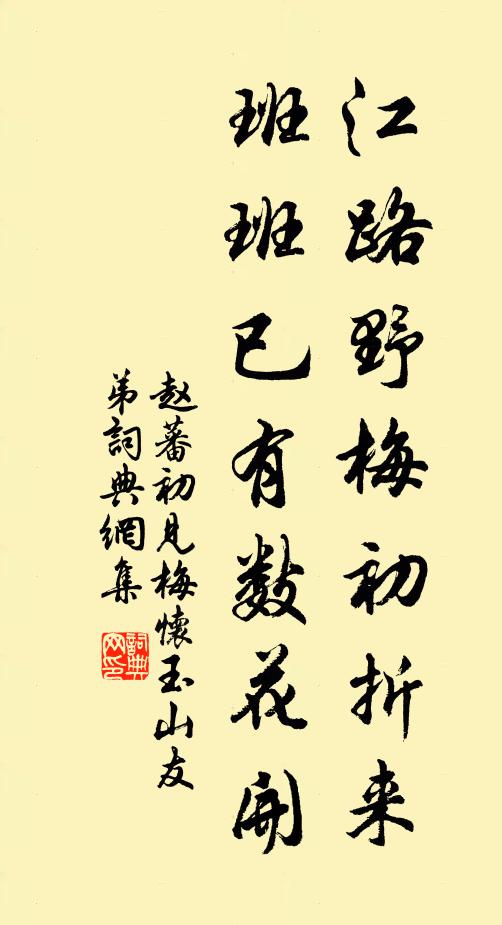 江路野梅初折来
班班已有数花開
赵蕃初见梅懷玉山友
弟詞典網集
詞典网印